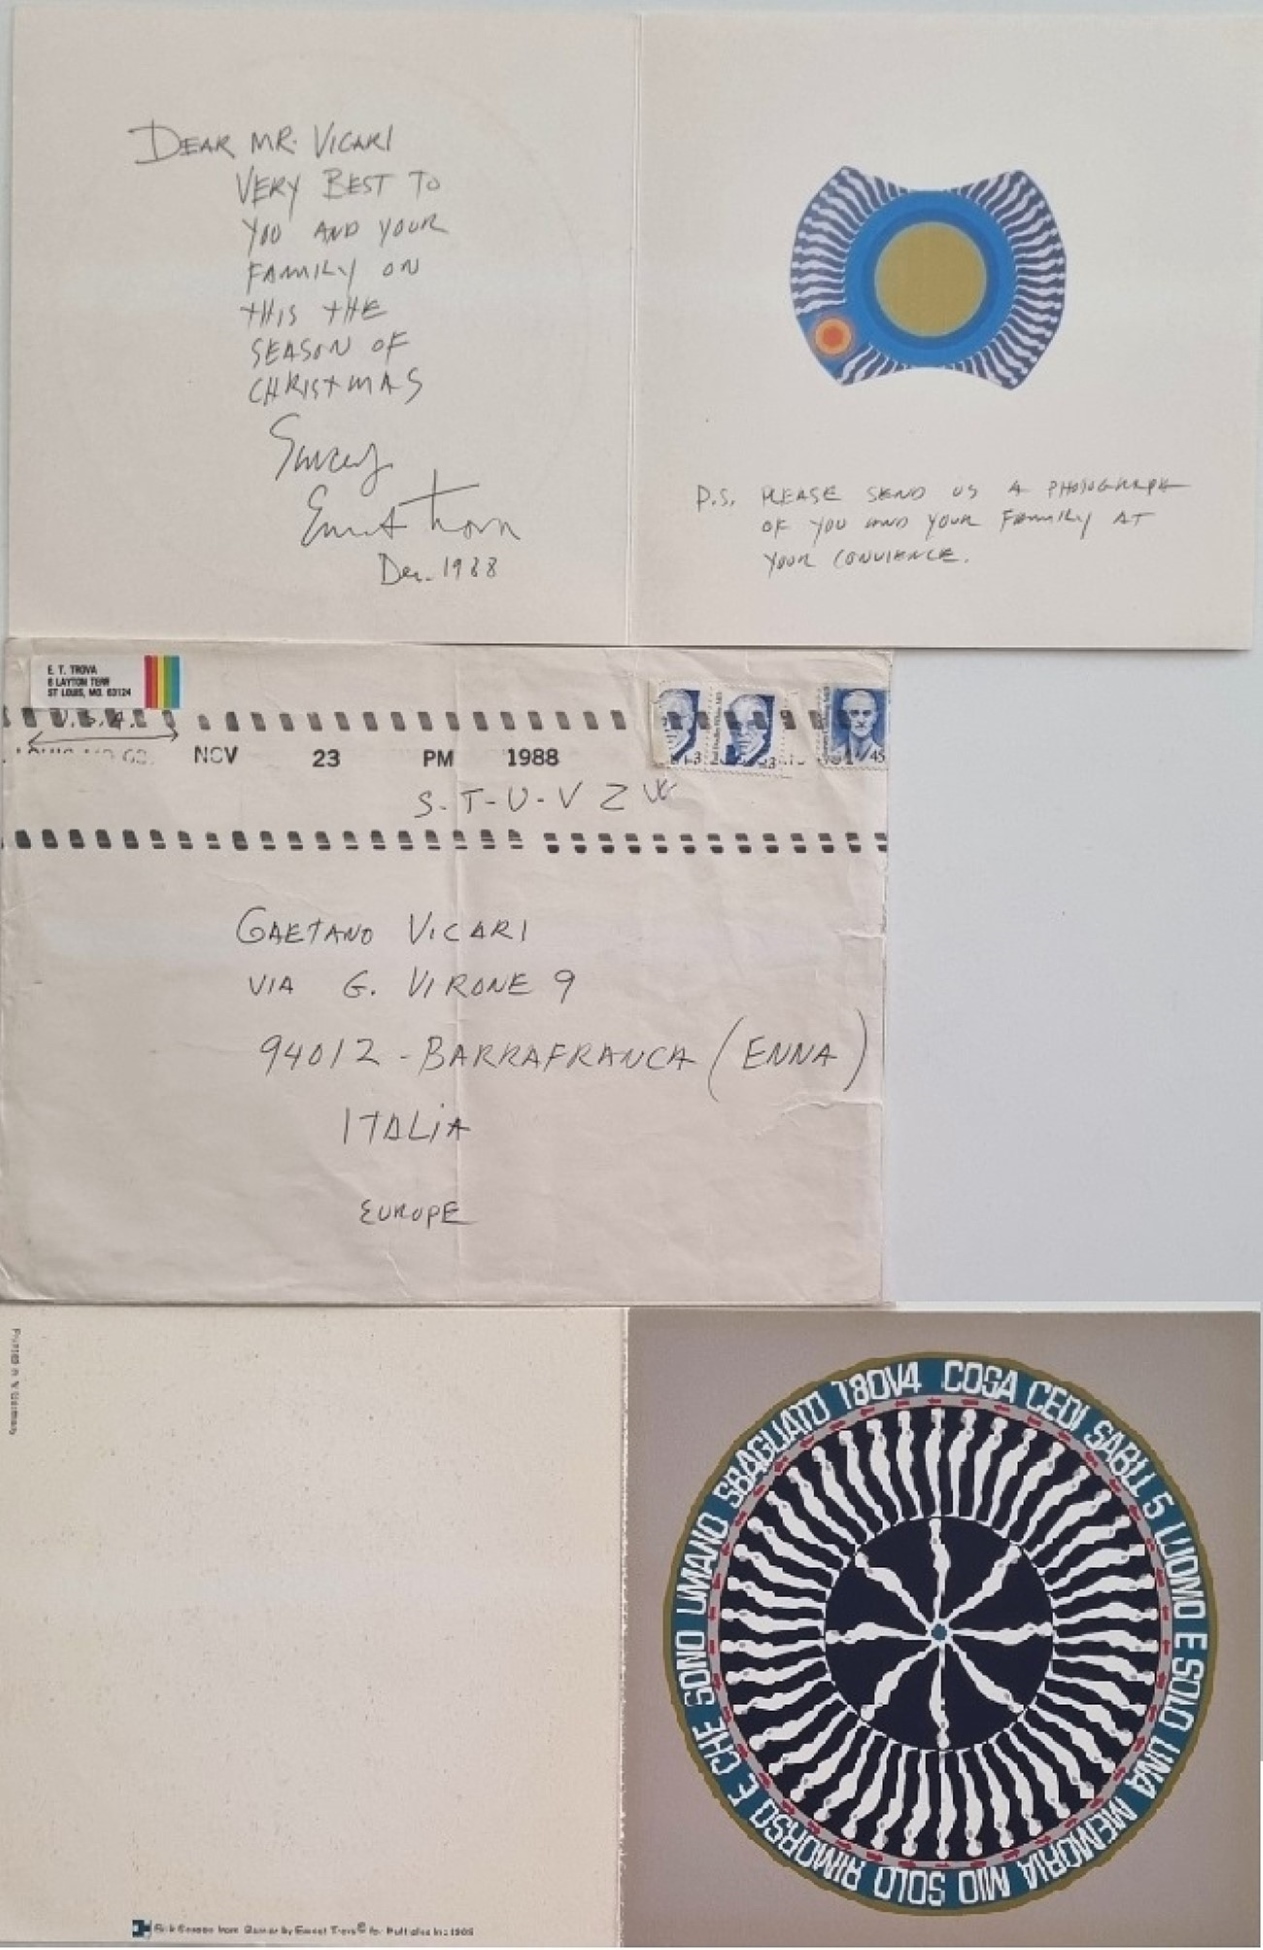 DEAR MR. VICARI
VERY BEST TO
YOU AND YOUR
FAMILY ON
THIS THE
SEASON OF
CHRISTMAS
Ernest Trova
Dec. 1988
P.S. PLEASE SEND US A PHOTOGRAPH
OF YOU AND YOUR FAMILY AT
YOUR CONVIENCE.
E. T. TROVA
6 LAYTON TERR
ST LOUIS, MO. 63124
U.S.A.
NOV 23 PM 1988
S-T-U-V Z
45
GAETANO VICARI
VIA G. VIRONE 9
94012 - BARRAFRANCA (ENNA)
ITALiA
EUROPE
Printed in W Germany
COSA CEDI SABLL 5 UOMO E SOLO UNA MEMORIA MIO SOLO RIMORSO E CHE SONO UMANO SBAGLIATO 180V4
by Ernest Trova ©